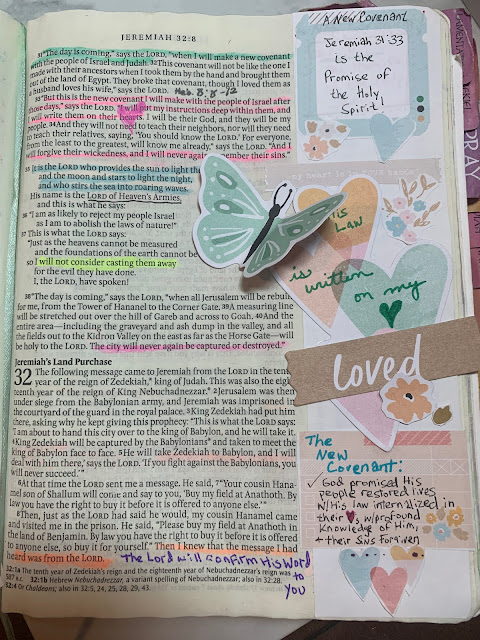 JEREMIAH 32:8
31 "The day is coming," says the LORD, "when I will make a new covenant
with the people of Israel and Judah. 32 This covenant will not be like the one I
made with their ancestors when I took them by the hand and brought them
out of the land of Egypt. They broke that covenant, though I loved them as
a husband loves his wife," says the LORD. Heb. 8:8-12
33 "But this is the new covenant I will make with the people of Israel after
those days," says the LORD. "I will put my instructions deep within them, and
I will write them on their hearts. I will be their God, and they will be my
people. 34 And they will not need to teach their neighbors, nor will they need
to teach their relatives, saying, 'You should know the LORD.' For everyone,
from the least to the greatest, will know me already," says the LORD. "And I
will forgive their wickedness, and I will never again remember their sins."
35 It is the LORD who provides the sun to light the day
and the moon and stars to light the night,
and who stirs the sea into roaring waves.
His name is the LORD of Heaven's Armies,
and this is what he says:
36 "I am as likely to reject my people Israel
as I am to abolish the laws of nature!"
37 This is what the LORD says:
"Just as the heavens cannot be measured
and the foundations of the earth cannot be
so I will not consider casting them away
for the evil they have done.
I, the LORD, have spoken!
38 "The day is coming," says the LORD, "when all Jerusalem will be rebuilt
for me, from the Tower of Hananel to the Corner Gate. 39 A measuring line
will be stretched out over the hill of Gareb and across to Goah. 40 And the
entire area—including the graveyard and ash dump in the valley, and all
the fields out to the Kidron Valley on the east as far as the Horse Gate—will
be holy to the LORD. The city will never again be captured or destroyed."
Jeremiah's Land Purchase
32 The following message came to Jeremiah from the LORD in the tenth
year of the reign of Zedekiah,* king of Judah. This was also the eigh-
teenth year of the reign of King Nebuchadnezzar.* 2 Jerusalem was then
under siege from the Babylonian army, and Jeremiah was imprisoned in
the courtyard of the guard in the royal palace. 3 King Zedekiah had put him
there, asking why he kept giving this prophecy: "This is what the LORD says:
'I am about to hand this city over to the king of Babylon, and he will take it.
4 King Zedekiah will be captured by the Babylonians* and taken to meet the
king of Babylon face to face. 5 He will take Zedekiah to Babylon, and I will
deal with him there,' says the LORD. 'If you fight against the Babylonians, you
will never succeed.'"
6 At that time the LORD sent me a message. He said, 7 "Your cousin Hana-
mel son of Shallum will come and say to you, 'Buy my field at Anathoth. By
law you have the right to buy it before it is offered to anyone else.'"
8 Then, just as the LORD had said he would, my cousin Hanamel came
and visited me in the prison. He said, "Please buy my field at Anathoth in
the land of Benjamin. By law you have the right to buy it before it is offered
to anyone else, so buy it for yourself." Then I knew that the message I had
heard was from the LORD.
The Lord will confirm His Word to
you
32:1a The tenth year of Zedekiah's reign and the eighteenth year of Nebuchadnezzar's reign was
587 B.C. 32:1b Hebrew Nebuchadrezzar, a variant spelling of Nebuchadnezzar; also in 32:28.
32:4 Or Chaldeans; also in 32:5, 24, 25, 28, 29, 43.
A New Covenant
Jeremiah 31:33
is the
Promise of
the Holy
Spirit!
His
Law
is
written
on my
loved
The
New
Covenant:
✓ God promised His
people restored lives
w/His law internalized in
their ♥s, w/profound
knowledge of Him,
+ their sins forgiven